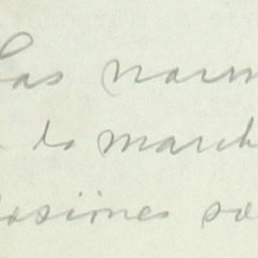 Las norm
a la march
osimes so